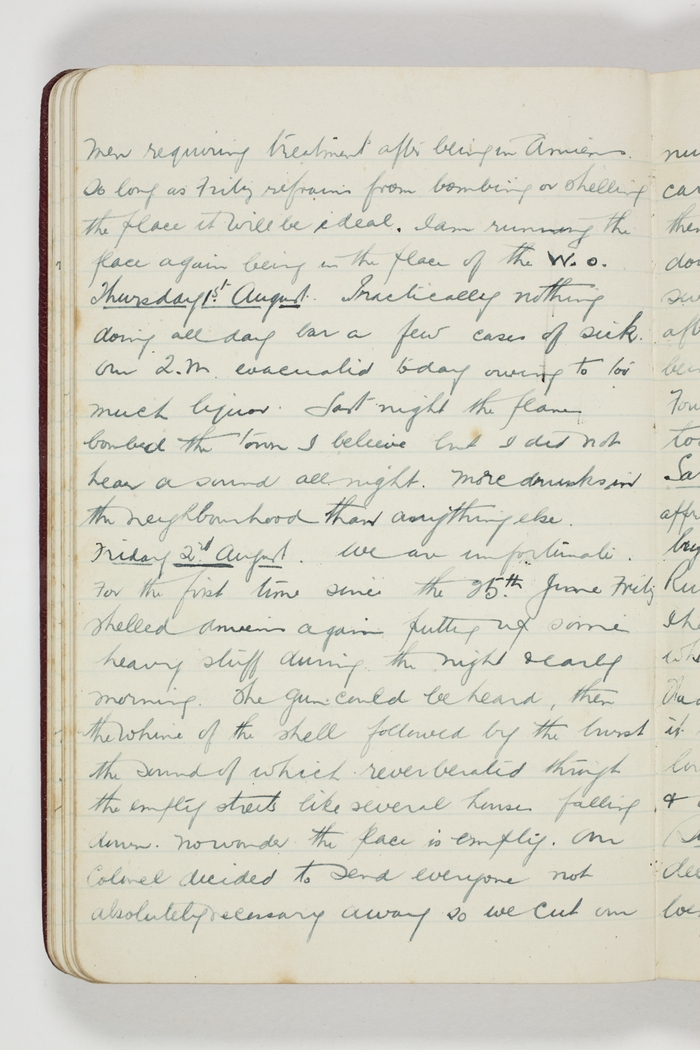 men requiring treatment after being in Amiens.
So long as Fritz refrains from bombing or shelling
the place it will be ideal. I am running the
place again being in the place of the W.O.
Thursday 1st August. Practically nothing
doing all day bar a few cases of sick.
Our Q.M. evacuated today owing to too
much liquor. Last night the planes
bombed the town I believe but I did not
hear a sound all night. More drunks in
the neighbourhood than anything else.
Friday 2nd August. We are unfortunate.
For the first time since the 25th June Fritz
shelled Amiens again putting up some
heavy stuff during the night & early
morning. The gun could be heard, then
the whine of the shell followed by the burst
the sound of which reverberated through
the empty streets like several houses falling
down. No wonder the place is empty. Our
Colonel decided to send everyone not
absolutely necessary away so we cut our